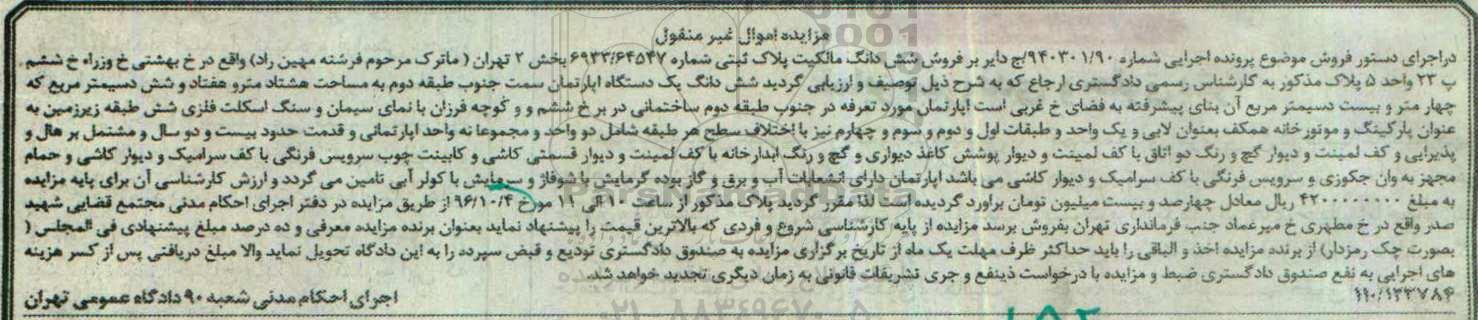 مزایده اموال غیر منقول
دراجرای دستور فروش موضوع پرونده اجرایی شماره ۹۴۰۳۰۱/۹۰/ج دایر بر فروش شش دانگ مالکیت پلاک ثبتی شماره ۶۹۳۳/۶۴۵۴۷ بخش ۲ تهران ( ماترک مرحوم فرشته مهین راد) واقع در خ بهشتی خ وزراء خ ششم
پ ۲۳ واحد ۵ پلاک مذکور به کارشناس رسمی دادگستری ارجاع که به شرح ذیل توصیف و ارزیابی گردید شش دانگ یک دستگاه اپارتمان سمت جنوب طبقه دوم به مساحت هشتاد مترو هفتاد و شش دسیمتر مربع که
چهار متر و بیست دسیمتر مربع آن بنای پیشرفته به فضای خ غربی است اپارتمان مورد تعرفه در جنوب طبقه دوم ساختمانی در بر خ ششم و و کوچه فرزان با نمای سیمان و سنگ اسکلت فلزی شش طبقه زیرزمین به
عنوان پارکینگ و موتورخانه همکف بعنوان لابی و یک واحد و طبقات اول و دوم و سوم و چهارم نیز با اختلاف سطح هر طبقه شامل دو واحد و مجموعا نه واحد اپارتمانی و قدمت حدود بیست و دو سال و مشتمل بر هال و
پذیرایی و کف لمینت و دیوار گچ و رنگ دو اتاق با کف لمینت و دیوار پوشش کاغذ دیواری و گچ و رنگ ابدارخانه با کف لمینت و دیوار قسمتی کاشی و کابینت چوب سرویس فرنگی با کف سرامیک و دیوار کاشی و حمام
مجهز به وان جکوزی و سرویس فرنگی با کف سرامیک و دیوار کاشی می باشد اپارتمان دارای انشعابات آب و برق و گاز بوده گرمایش با شوفاژ و سرمایش با کولر آبی تامین می گردد و ارزش کارشناسی آن برای پایه مزایده
به مبلغ ۴۲۰۰۰۰۰۰۰۰ ریال معادل چهارصد و بیست میلیون تومان براورد گردیده است لذا مقرر گردید پلاک مذکور از ساعت ۱۰ الی ۱۱ مورخ ۹۶/۱۰/۴ از طریق مزایده در دفتر اجرای احکام مدنی مجتمع قضایی شهید
صدر واقع در خ مطهری خ میرعماد جنب فرمانداری تهران بفروش برسد مزایده از پایه کارشناسی شروع و فردی که بالاترین قیمت را پیشنهاد نماید بعنوان برنده مزایده معرفی و ده درصد مبلغ پیشنهادی فی المجلس (
بصورت چک رمزدار) از برنده مزایده اخذ و الباقی را باید حداکثر ظرف مهلت یک ماه از تاریخ برگزاری مزایده به صندوق دادگستری تودیع و قبض سپرده را به این دادگاه تحویل نماید والا مبلغ دریافتی پس از کسر هزینه
های اجرایی به نفع صندوق دادگستری ضبط و مزایده با درخواست ذینفع و جری تشریفات قانونی به زمان دیگری تجدید خواهد شد.
۱۱۰/۱۳۳۷۸۴ اجرای احکام مدنی شعبه ۹۰ دادگاه عمومی تهران
ParsNamadData
۰۲۱-۸۸۳۴۹۶۷۰-۵